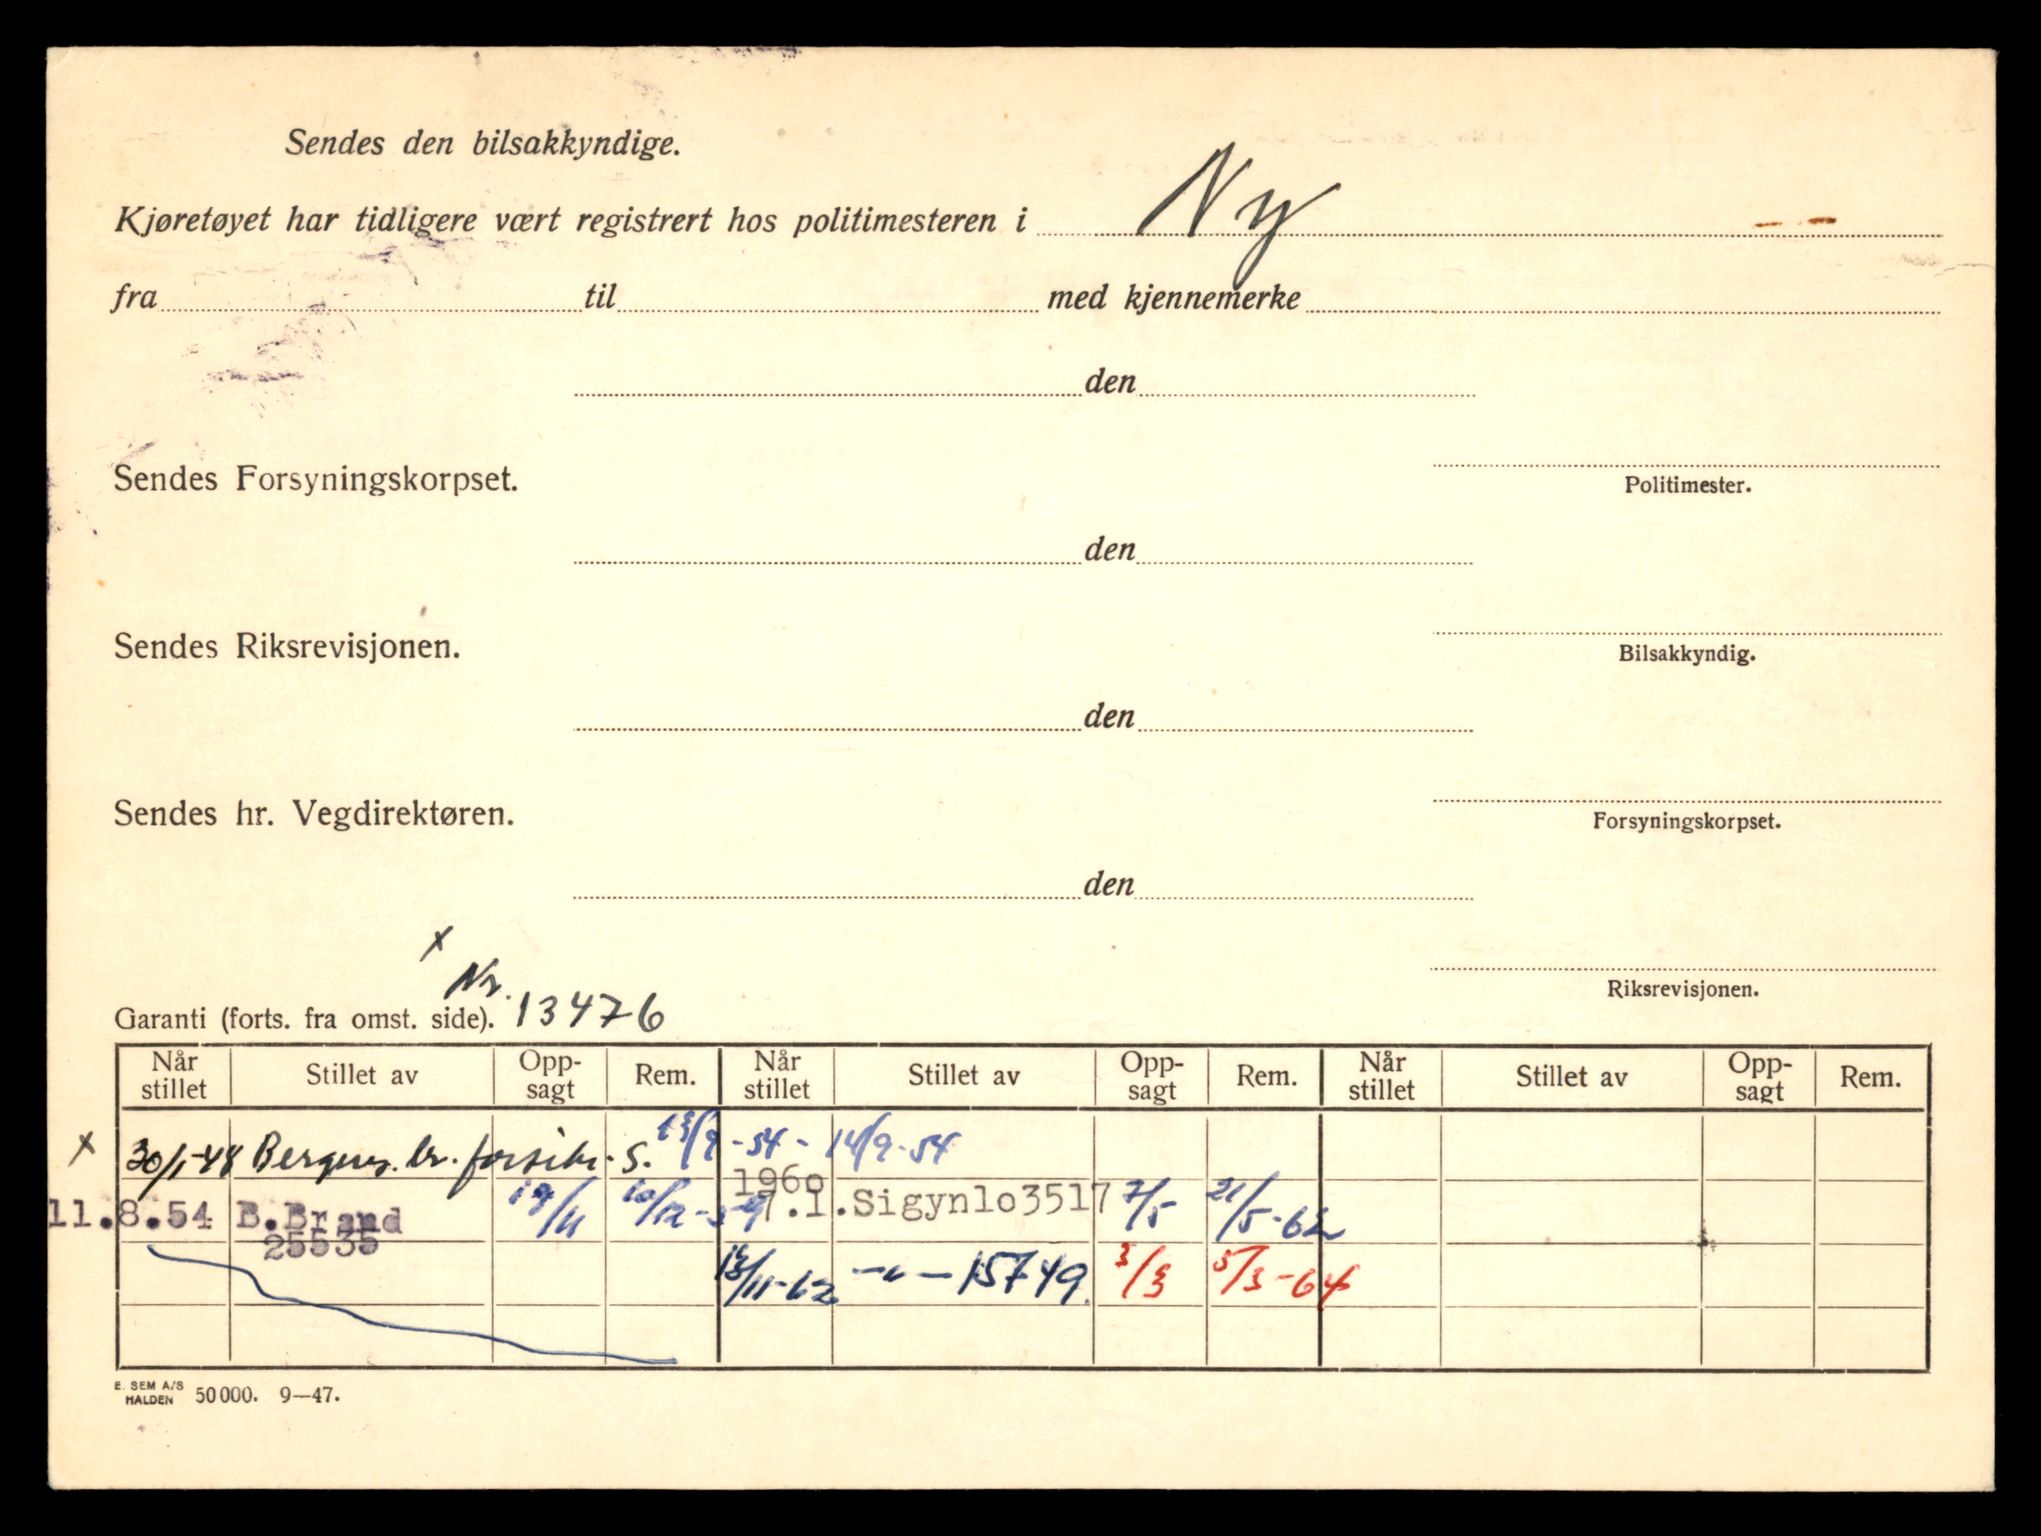 Sendes den bilsakkyndige.
Kjøretøyet har tidligere vært registrert hos politimesteren i Ny
fra til med kjennemerke
den
Sendes Forsyningskorpset.
Politimester.
den
Sendes Riksrevisjonen.
Bilsakkyndig.
den
Sendes hr. Vegdirektøren.
Forsyningskorpset.
den
x
Riksrevisjonen.
Nr.
Garanti (forts. fra omst. side). 13476
Når stillet Stillet av Opp-sagt Rem. Når stillet Stillet av Opp-sagt Rem. Når stillet Stillet av Opp-sagt Rem.
x 30/1-48 Bergens. br. forsikr. s. 13/9-54 - 14/9-54
1960
11.8.54 B.Brand 19/11 7.1.Sigynlo3517 7/5 21/5-62
25535
13/11-62 -"- 15749 3/3 5/3-64
E. SEM A/S HALDEN 50000. 9—47.